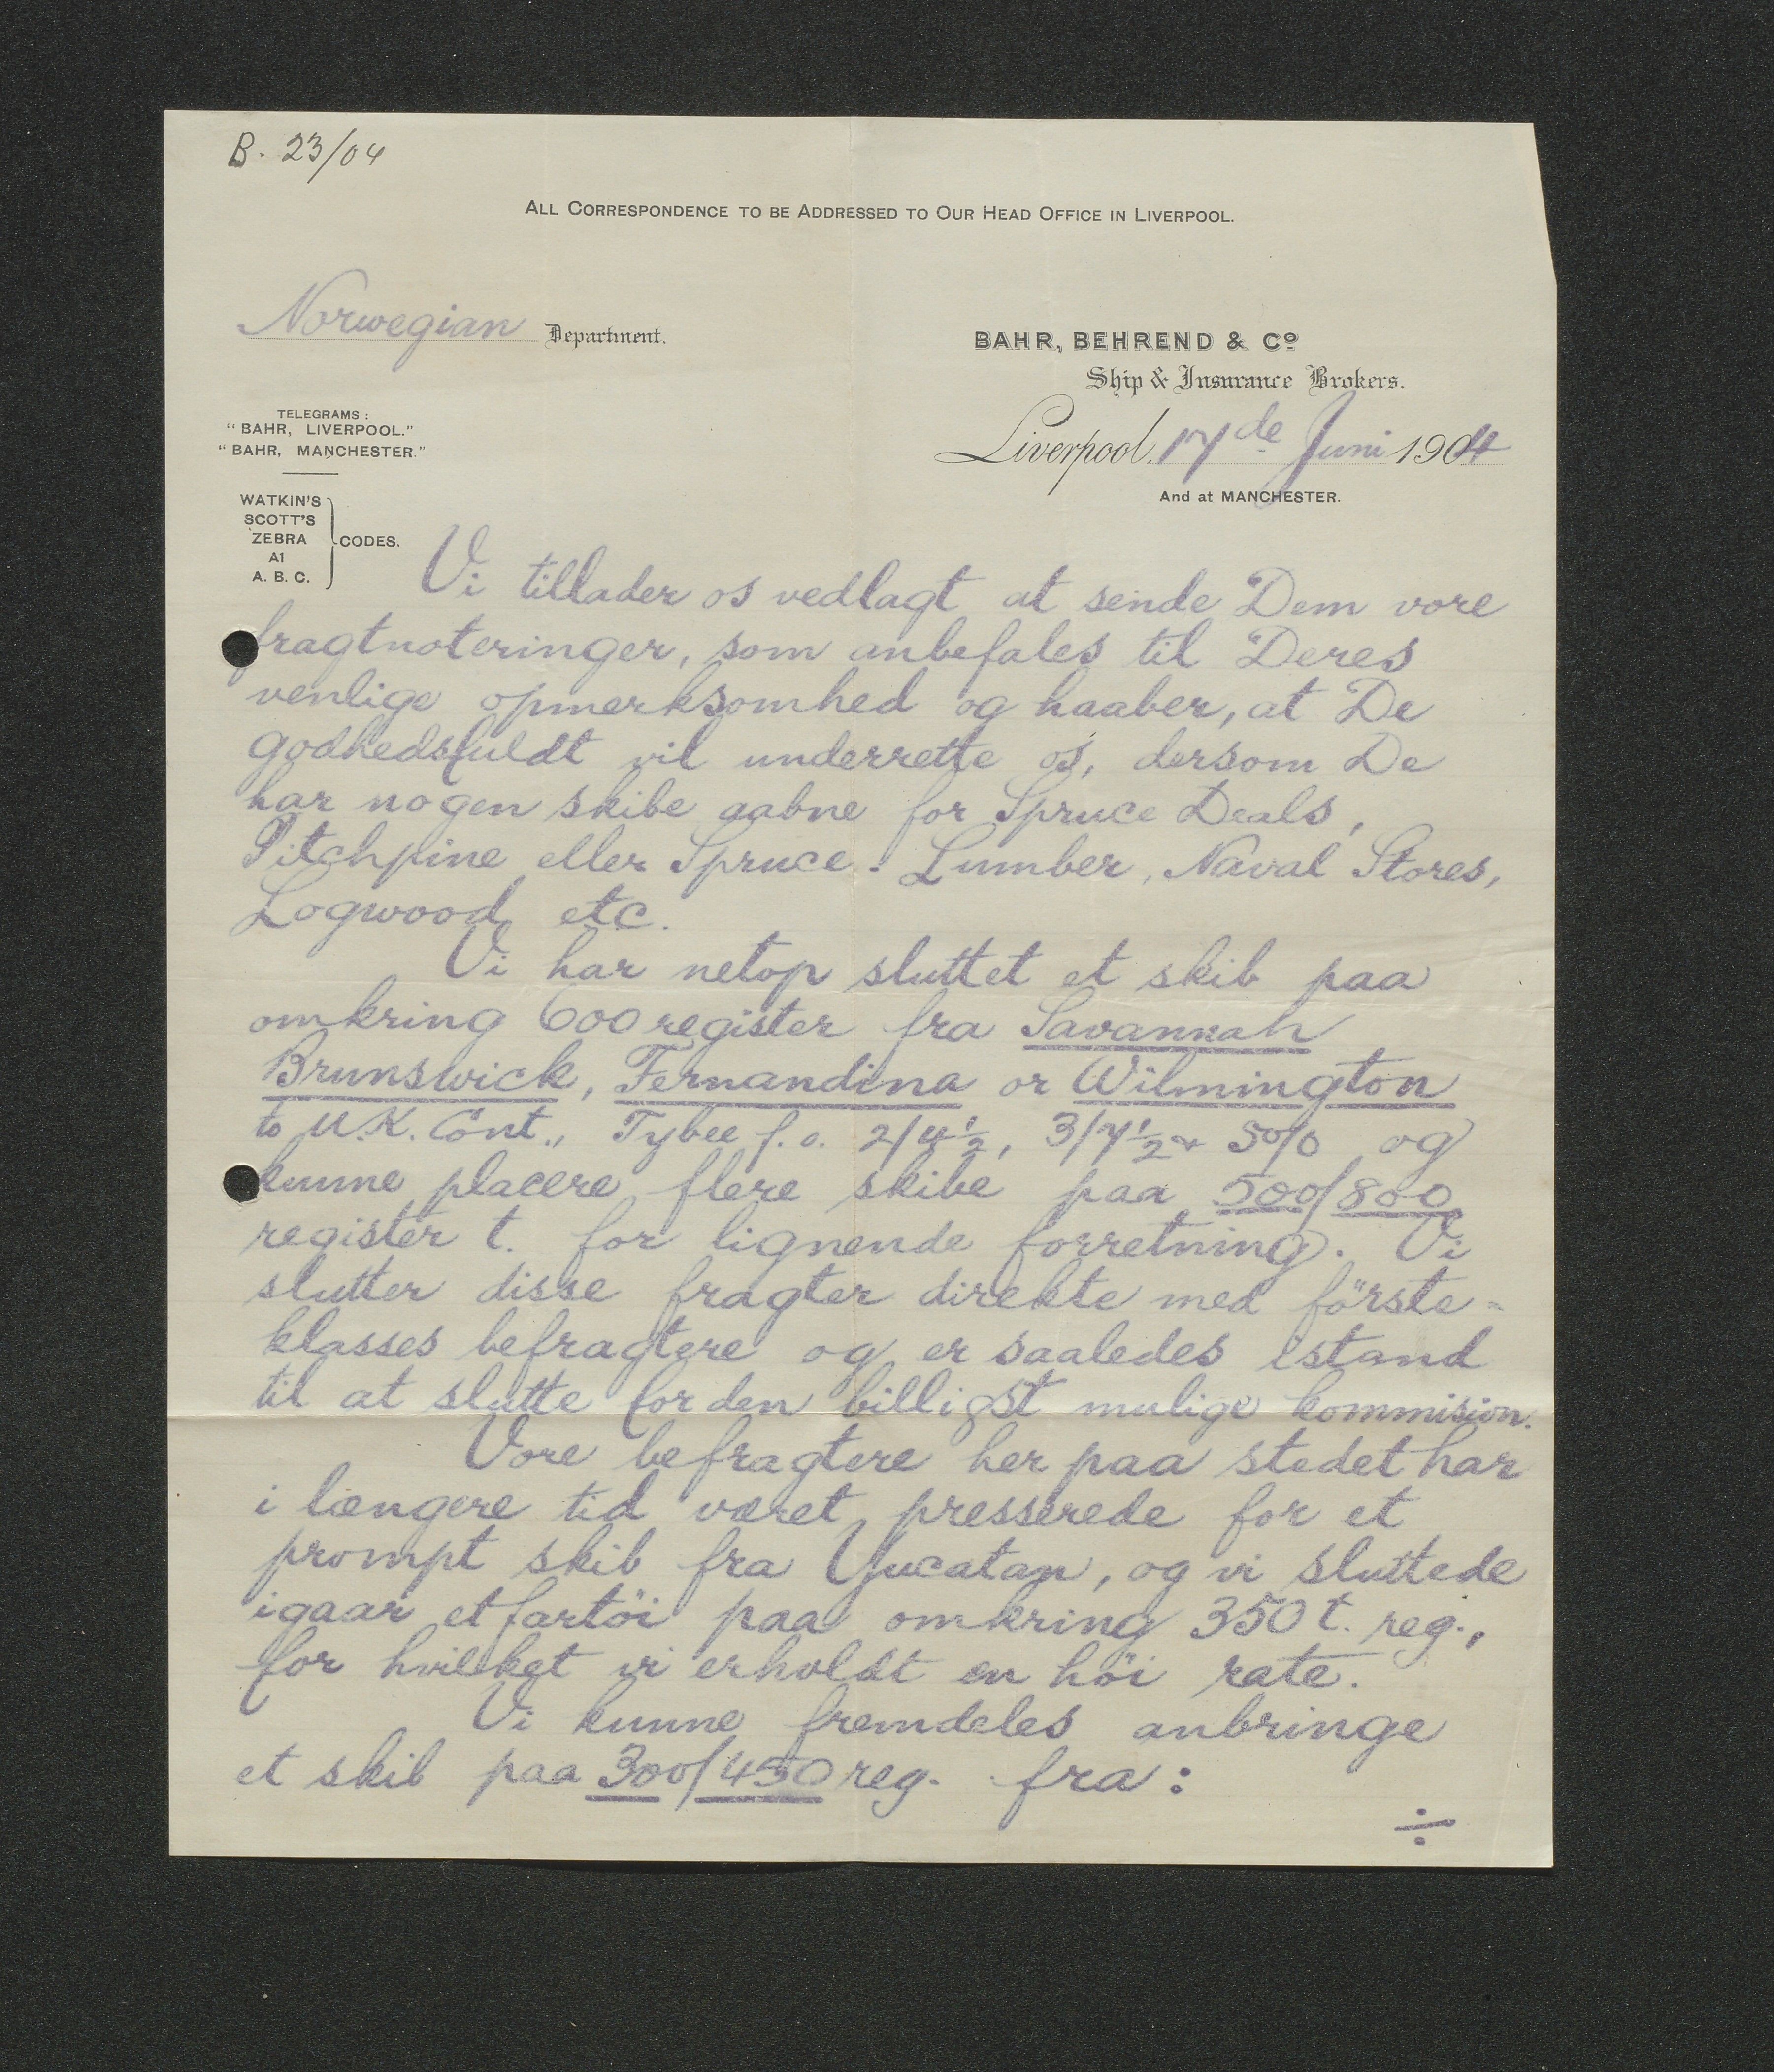 B. 23/04
ALL CORRESPONDENCE TO BE ADDRESSED TO OUR HEAD OFFICE IN LIVERPOOL.
Norwegian Department.
BAHR, BEHREND & Co
Ship & Insurance Brokers.
TELEGRAMS:
"BAHR, LIVERPOOL."
"BAHR, MANCHESTER."
Liverpool, 17de Juni 1904
And at MANCHESTER.
WATKIN'S
SCOTT'S
ZEBRA
A1
A. B. C.
CODES.
Vi tillader os vedlagt at sende Dem vore
fragtnoteringer, som anbefales til Deres
venlige opmerksomhed og haaber, at De
godhedsfuldt vil underrette os, dersom De
har nogen skibe aabne for Spruce Deals,
Pitchpine eller Spruce. Lumber, Naval Stores,
Logwood etc.
Vi har netop sluttet et skib paa
omkring 600 register fra Savannah
Brunswick, Fernandina or Wilmington
to U.K. Cont., Tybee f.o. 2/4½, 3/7½ & 5% og
kunne placere flere skibe paa 500/800
register t. for lignende forretning. Vi
slutter disse fragter direkte med förste-
klasses befragtere og er saaledes istand
til at slutte for den billigst mulige kommision.
Vore befragtere her paa stedet har
i længere tid været presserede for et
prompt skib fra Yucatan, og vi sluttede
igaar et fartöi paa omkring 350 t. reg.,
for hvilket vi erholdt en höi rate.
Vi kunne fremdeles anbringe
et skib paa 300/450 reg. fra:
÷